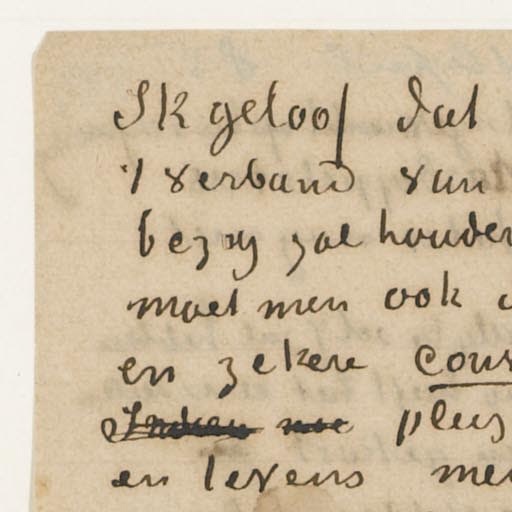 Ik geloof dat
't verband van
bezig zal houden
moet men ook
en zekere cour
Indien plus
en levens men